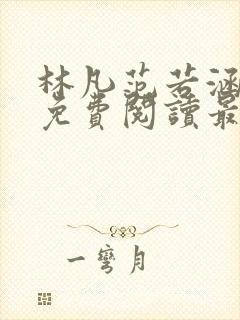 林凡范若涵
免費閱讀最
一彎月